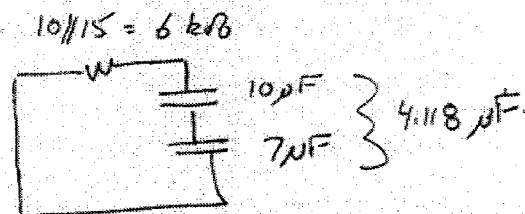 10//15 = 6 kΩ
10μF
7μF
4.118 μF.